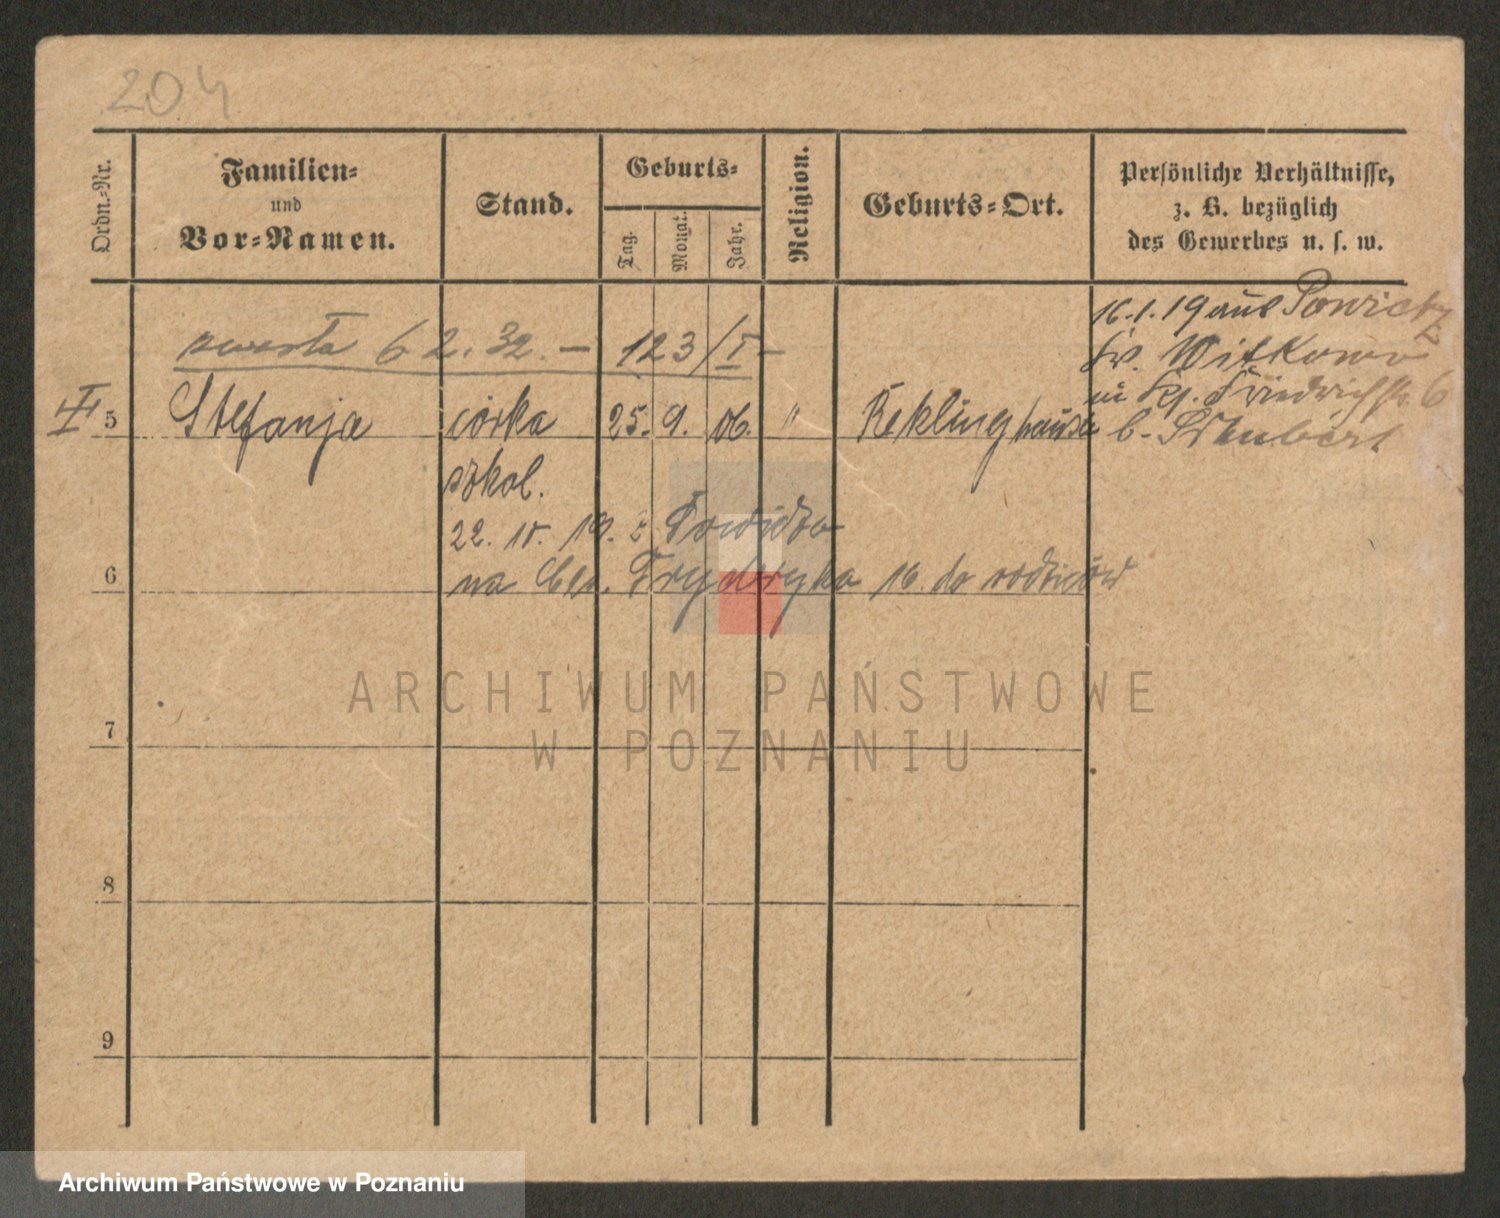 204
Ordn.-Nr.
Familien-
und
Vor-Namen.
Stand.
Geburts-
Tag.
Monat.
Jahr.
Religion.
Geburts-Ort.
Persönliche Verhältnisse,
z. B. bezüglich
des Gewerbes u. s. w.
16.1.19 aus Powidz
Kr. Witkowo
Friedrichstr. 6
b.
zmarła 6 2. 32. — 123/I —
II 5 Stefanja córka 25. 9. 06. " Reklinghausen
szkol.
22. 10. 19. z Powidza
6 na Fryderyka 16. do rodziców
7
8
9
ARCHIWUM PAŃSTWOWE
W POZNANIU
Archiwum Państwowe w Poznaniu